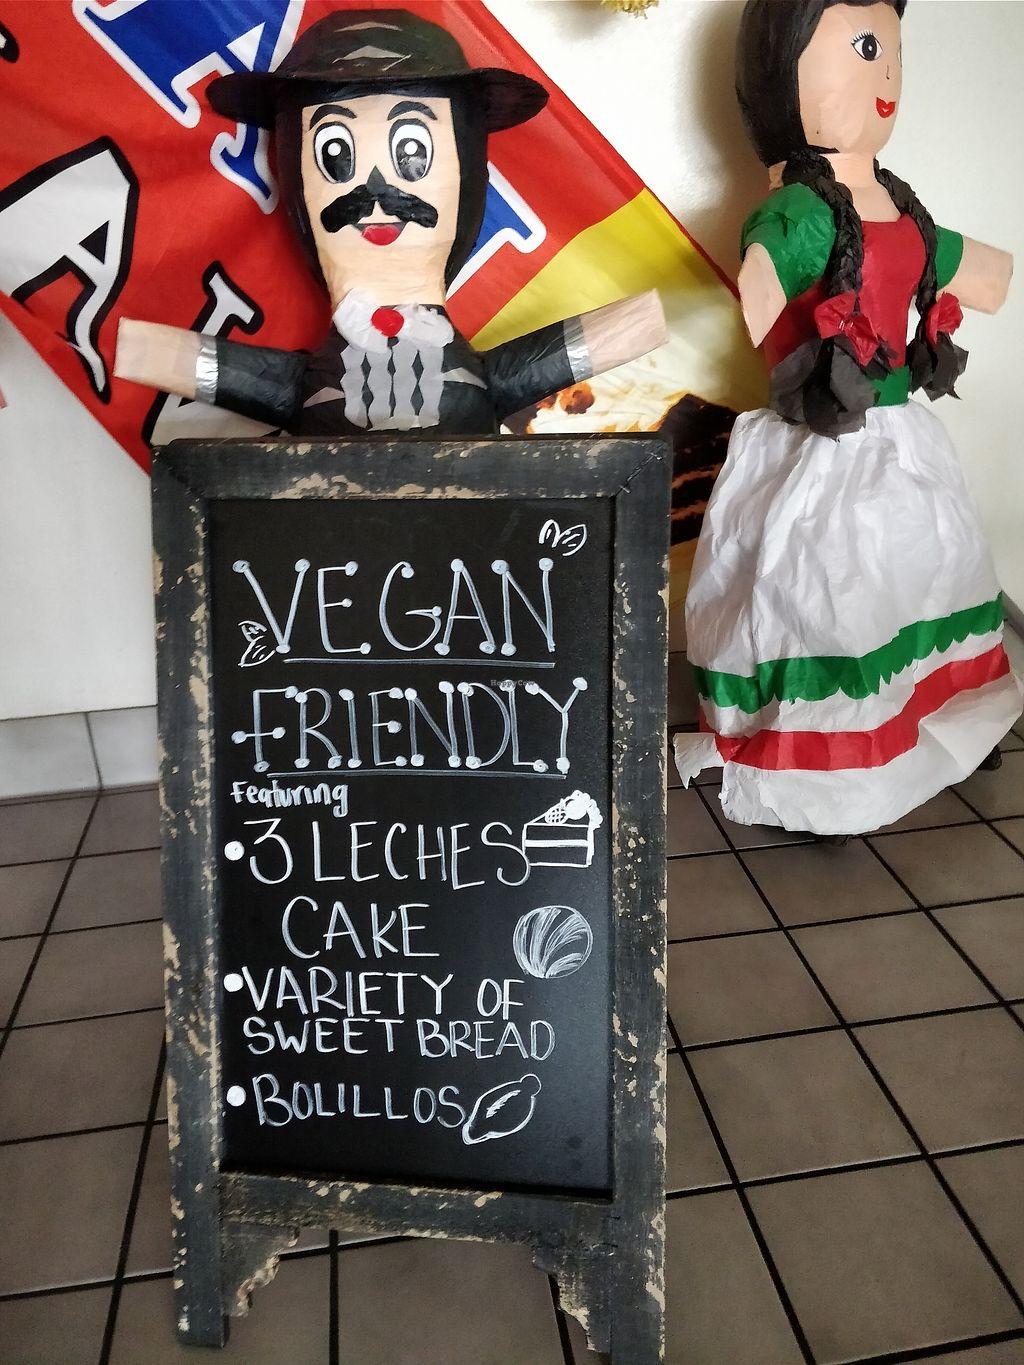 VEGAN
FRIENDLY
Featuring
• 3 LECHES
CAKE
• VARIETY OF
SWEET BREAD
• BOLILLOS
HappyCow